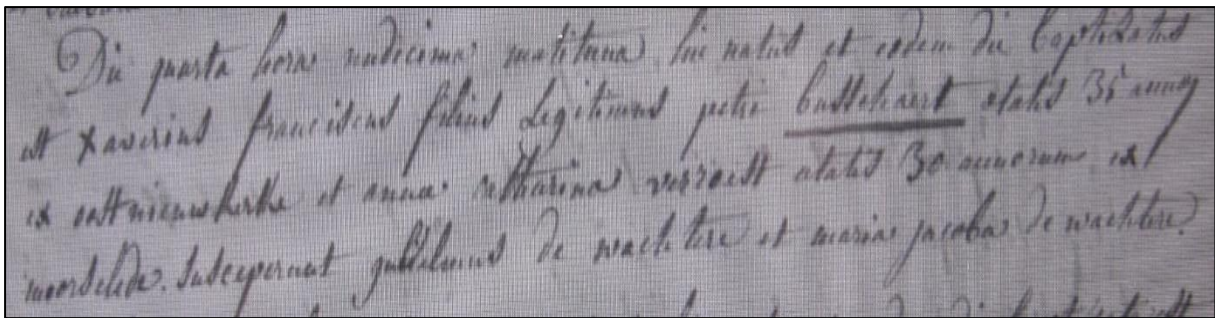 Die quarta hora undecima matituna hic natus et eodem die baptizatus
est Xaverius franciscus filius Legitimus petri busschaert etatis 35 annorum
ex oostnieuwkerke et anna catharina verroest etatis 30 annorum ex
moorslede. Susceperunt guilielmus de wachtere et maria jacoba de wachtere.